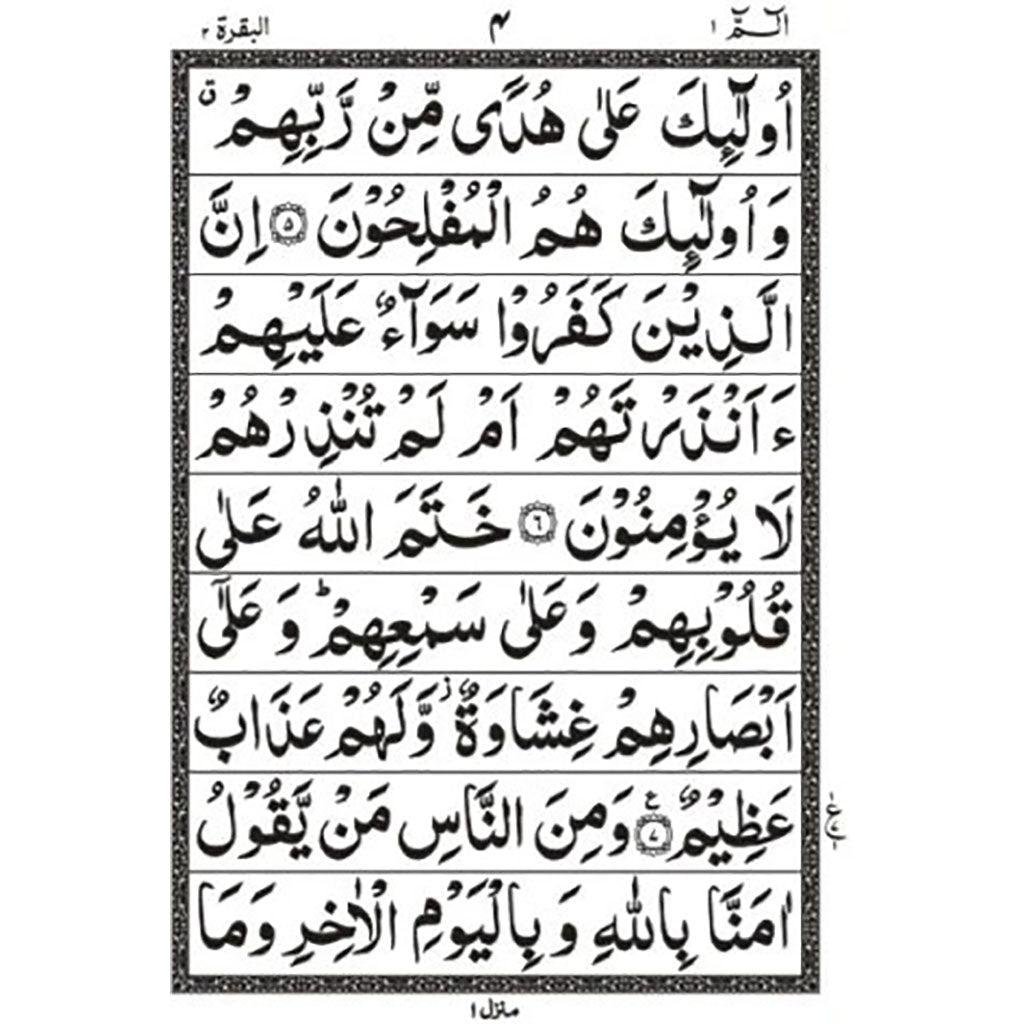 الٓـمّٓ ١ ۴ البقرة ٢
اُولٰٓئِكَ عَلٰى هُدًى مِّنْ رَّبِّهِمْ ۛق
وَ اُولٰٓئِكَ هُمُ الْمُفْلِحُوْنَ ۝۵ اِنَّ
الَّذِيْنَ كَفَرُوْا سَوَآءٌ عَلَيْهِمْ
ءَاَنْذَرْتَهُمْ اَمْ لَمْ تُنْذِرْهُمْ
لَا يُؤْمِنُوْنَ ۝۶ خَتَمَ اللّٰهُ عَلٰى
قُلُوْبِهِمْ وَ عَلٰى سَمْعِهِمْ ؕ وَ عَلٰٓى
اَبْصَارِهِمْ غِشَاوَةٌ ؗ وَّ لَهُمْ عَذَابٌ
عَظِيْمٌ ۝۷ ع وَ مِنَ النَّاسِ مَنْ يَّقُوْلُ
اٰمَنَّا بِاللّٰهِ وَ بِالْيَوْمِ الْاٰخِرِ وَ مَا
منزل ١